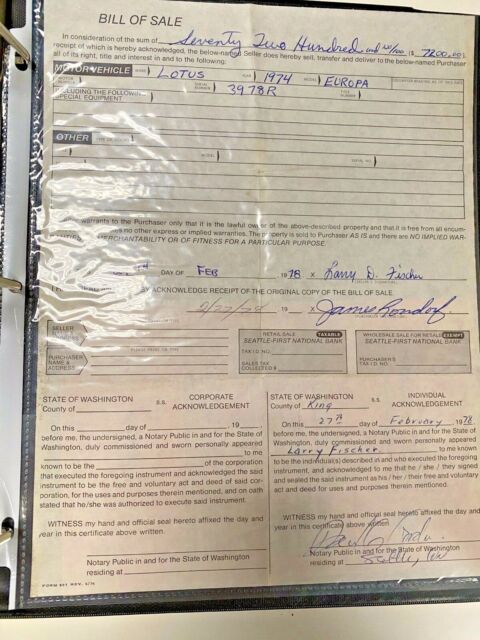 BILL OF SALE
In consideration of the sum of Seventy Two Hundred and no/100 ($ 7200.00)
receipt of which is hereby acknowledged, the below-named Seller does hereby sell, transfer and deliver to the below-named Purchaser
all of its right, title and interest in and to the following:
MOTOR VEHICLE MAKE LOTUS YEAR 1974 MODEL EUROPA
SERIAL NUMBER 3978R TITLE NUMBER
INCLUDING THE FOLLOWING
SPECIAL EQUIPMENT
OTHER
MODEL SERIAL NO.
warrants to the Purchaser only that it is the lawful owner of the above-described property and that it is free from all encum-
no other express or implied warranties. The property is sold to Purchaser AS IS and there are NO IMPLIED WAR-
MERCHANTABILITY OR OF FITNESS FOR A PARTICULAR PURPOSE.
DAY OF FEB 1978 x Larry D. Fischer
ACKNOWLEDGE RECEIPT OF THE ORIGINAL COPY OF THE BILL OF SALE.
2/27/78 19 x James
SELLER
PURCHASER
NAME &
ADDRESS
PLEASE PRINT OR TYPE
RETAIL SALE TAXABLE
SEATTLE-FIRST NATIONAL BANK
TAX I.D. NO.
SALES TAX
COLLECTED $
WHOLESALE SALE FOR RESALE EXEMPT
SEATTLE-FIRST NATIONAL BANK
PURCHASER'S
TAX I.D. NO.
STATE OF WASHINGTON
County of
s.s.
CORPORATE
ACKNOWLEDGEMENT
On this day of , 19 ,
before me, the undersigned, a Notary Public in and for the State of
Washington, duly commissioned and sworn personally appeared
to me
known to be the of the corporation
that executed the foregoing instrument and acknowledged the said
instrument to be the free and voluntary act and deed of said cor-
poration, for the uses and purposes therein mentioned, and on oath
stated that he/she was authorized to execute said instrument.
WITNESS my hand and official seal hereto affixed the day and
year in this certificate above written.
Notary Public in and for the State of Washington
residing at
FORM 661 REV. 5/76
STATE OF WASHINGTON
County of King
s.s.
INDIVIDUAL
ACKNOWLEDGEMENT
On this 27th day of February, 1978,
before me, the undersigned, a Notary Public in and for the State of
Washington, duly commissioned and sworn personally appeared
Larry Fischer to me known
to be the individual(s) described in and who executed the foregoing
instrument, and acknowledged to me that he / she / they signed
and sealed the said instrument as his / her / their free and voluntary
act and deed for uses and purposes therein mentioned.
WITNESS my hand and official seal hereto affixed the day and
year in this certificate above written
Notary Public in and for the State of Washington
residing at Seattle, Wa